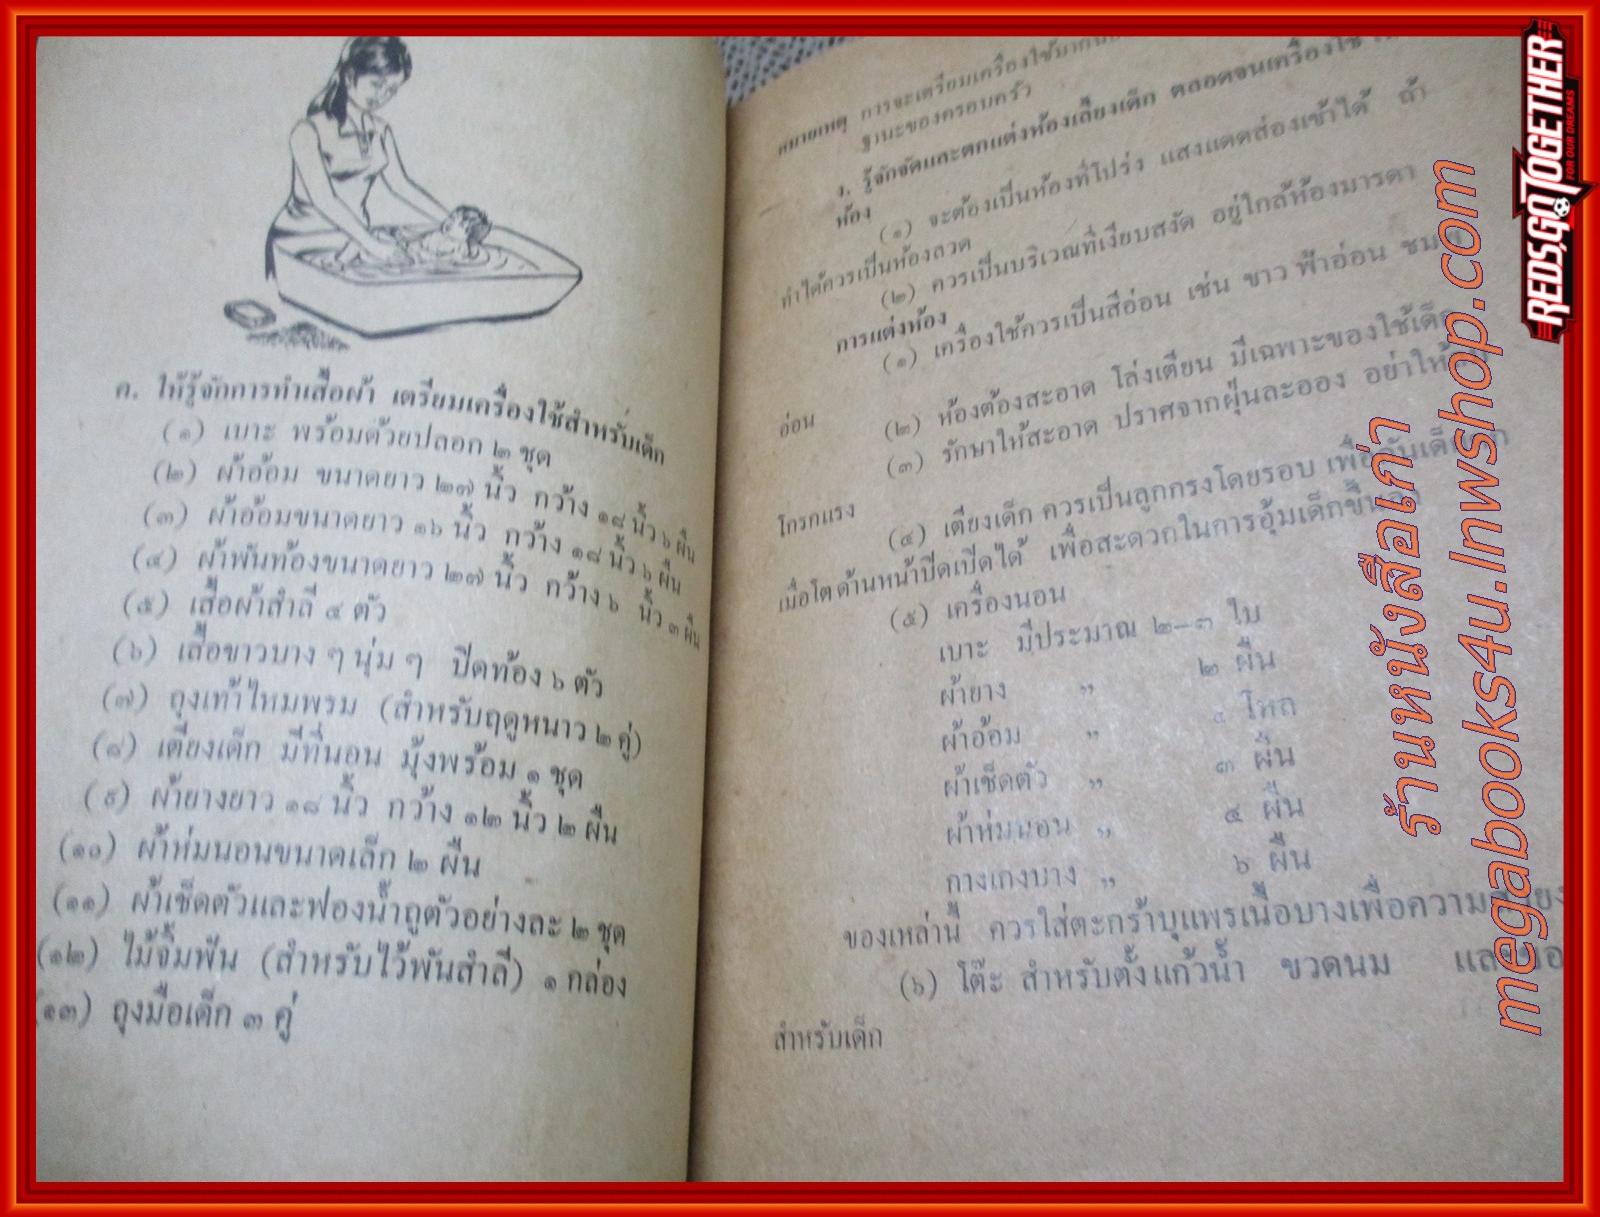 ค. ให้รู้จักการทำเสื้อผ้า เตรียมเครื่องใช้สำหรับเด็ก
(๑) เบาะ พร้อมด้วยปลอก ๒ ชุด
(๒) ผ้าอ้อม ขนาดยาว ๒๗ นิ้ว กว้าง ๑๘ นิ้ว ๖ ผืน
(๓) ผ้าอ้อมขนาดยาว ๑๖ นิ้ว กว้าง ๑๘ นิ้ว ๖ ผืน
(๔) ผ้าพันท้องขนาดยาว ๒๗ นิ้ว กว้าง ๖ นิ้ว ๓ ผืน
(๕) เสื้อผ้าสำลี ๔ ตัว
(๖) เสื้อขาวบาง ๆ นุ่ม ๆ ปิดท้อง ๖ ตัว
(๗) ถุงเท้าไหมพรม (สำหรับฤดูหนาว ๒ คู่)
(๘) เตียงเด็ก มีที่นอน มุ้งพร้อม ๑ ชุด
(๙) ผ้ายางยาว ๑๘ นิ้ว กว้าง ๑๒ นิ้ว ๒ ผืน
(๑๐) ผ้าห่มนอนขนาดเล็ก ๒ ผืน
(๑๑) ผ้าเช็ดตัวและฟองน้ำถูตัวอย่างละ ๒ ชุด
(๑๒) ไม้จิ้มฟัน (สำหรับไว้พันสำลี) ๑ กล่อง
(๑๓) ถุงมือเด็ก ๓ คู่
หมายเหตุ การจะเตรียมเครื่องใช้มาก
ฐานะของครอบครัว
ง. รู้จักจัดและตกแต่งห้องเลี้ยงเด็ก ตลอดจนเครื่องใช้
ห้อง
(๑) จะต้องเป็นห้องที่โปร่ง แสงแดดส่องเข้าได้ ถ้า
ทำได้ควรเป็นห้องลวด
(๒) ควรเป็นบริเวณที่เงียบสงัด อยู่ใกล้ห้องมารดา
การแต่งห้อง
(๑) เครื่องใช้ควรเป็นสีอ่อน เช่น ขาว ฟ้าอ่อน
อ่อน
(๒) ห้องต้องสะอาด โล่งเตียน มีเฉพาะของใช้เด็ก
(๓) รักษาให้สะอาด ปราศจากฝุ่นละออง อย่าให้
โกรกแรง
(๔) เตียงเด็ก ควรเป็นลูกกรงโดยรอบ เพื่อกันเด็ก
เมื่อโต ด้านหน้าปิดเปิดได้ เพื่อสะดวกในการอุ้มเด็กขึ้น
(๕) เครื่องนอน
เบาะ มีประมาณ ๒–๓ ใบ
ผ้ายาง ” ๒ ผืน
ผ้าอ้อม ” ๔ โหล
ผ้าเช็ดตัว ” ๓ ผืน
ผ้าห่มนอน ” ๔ ผืน
กางเกงบาง ” ๖ ผืน
ของเหล่านี้ ควรใส่ตะกร้าบุแพรเนื้อบางเพื่อความ
(๖) โต๊ะ สำหรับตั้งแก้วน้ำ ขวดนม
สำหรับเด็ก
ร้านหนังสือเก่า
megabooks4u.lnwshop.com
REDSGOTOGETHER
FOR OUR DREAMS